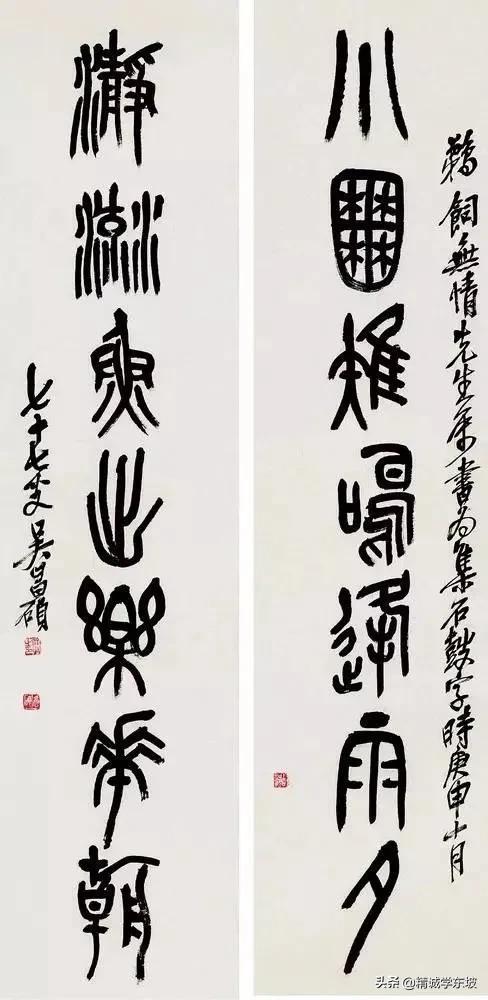 無情先生書為集石鼓字時庚申十月
小囿雉鳴逢雨夕
瀞流魚出樂華朝
七十七叟吳昌碩
头条 @精诚学东坡